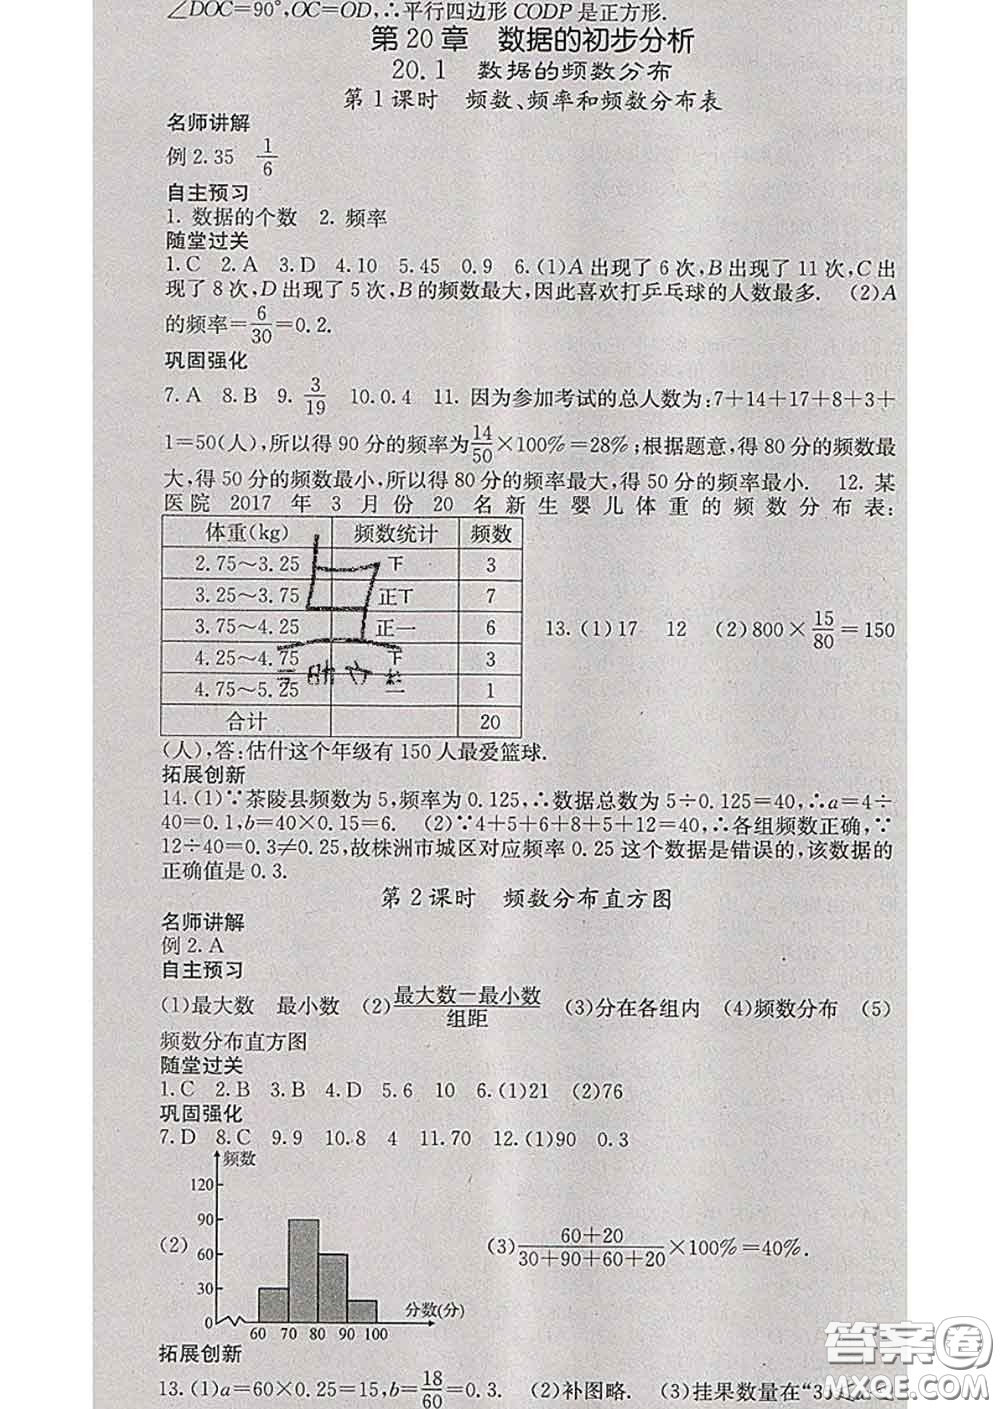 ∠DOC=90°,OC=OD,∴平行四边形 CODP 是正方形.
第 20 章　数据的初步分析
20.1　数据的频数分布
第 1 课时　频数、频率和频数分布表
名师讲解
例 2.35　1/6
自主预习
1. 数据的个数　2. 频率
随堂过关
1.C　2.A　3.D　4.10　5.45　0.9　6.(1)A 出现了 6 次,B 出现了 11 次,C 出
现了 8 次,D 出现了 5 次,B 的频数最大,因此喜欢打乒乓球的人数最多.　(2)A
的频率=6/30=0.2.
巩固强化
7.A　8.B　9. 3/19　10.0.4　11. 因为参加考试的总人数为:7+14+17+8+3+
1=50(人),所以得 90 分的频率为14/50×100%=28%;根据题意,得 80 分的频数最
大,得 50 分的频数最小,所以得 80 分的频率最大,得 50 分的频率最小.　12. 某
医院 2017 年 3 月份 20 名新生婴儿体重的频数分布表:
体重(kg)　频数统计　频数
2.75～3.25　下　3
3.25～3.75　正丅　7
3.75～4.25　正一　6
4.25～4.75　下　3
4.75～5.25　一　1
合计　20
13.(1)17　12　(2)800×15/80=150
(人),答:估计这个年级有 150 人最爱篮球.
拓展创新
14.(1)∵茶陵县频数为 5,频率为 0.125,∴数据总数为 5÷0.125=40,∴a=4÷
40=0.1,b=40×0.15=6.　(2)∵4+5+6+8+5+12=40,∴各组频数正确,∵
12÷40=0.3≠0.25,故株洲市城区对应频率 0.25 这个数据是错误的,该数据的
正确值是 0.3.
第 2 课时　频数分布直方图
名师讲解
例 2.A
自主预习
(1)最大数　最小数　(2)最大数－最小数/组距　(3)分在各组内　(4)频数分布　(5)
频数分布直方图
随堂过关
1.C　2.B　3.B　4.D　5.6　10　6.(1)21　(2)76
巩固强化
7.D　8.C　9.9　10.8　4　11.70　12.(1)90　0.3
(2)
频数
120
90
60
30
0
60　70　80　90　100
分数(分)
(3)60+20/30+90+60+20×100%=40%.
拓展创新
13.(1)a=60×0.25=15,b=18/60=0.3.　(2)补图略.　(3)挂果数量在“
答案圈
MXQE.COM